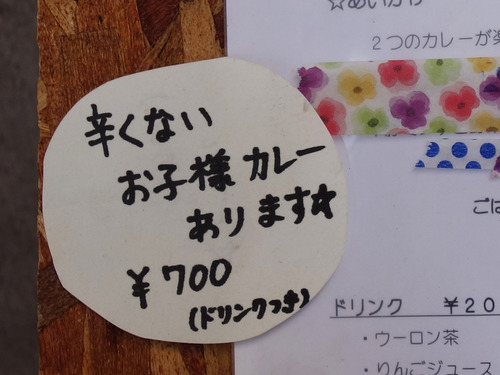 辛くない
お子様カレー
あります☆
¥700
(ドリンクつき)
2つのカレーが
ごは
ドリンク ¥20
・ウーロン茶
・りんごジュース